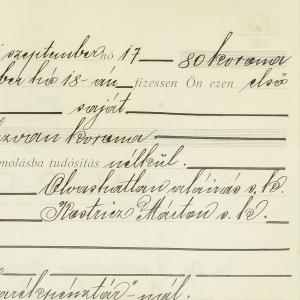 szeptember hó 17 — 80 korona
ber hó 18-án fizessen Ön ezen első
saját
korona
molásba tudósitás nélkül.
Olvashatlan aláirás s. k.
Kostricz Márton s. k.
arékpénztár"-nál.